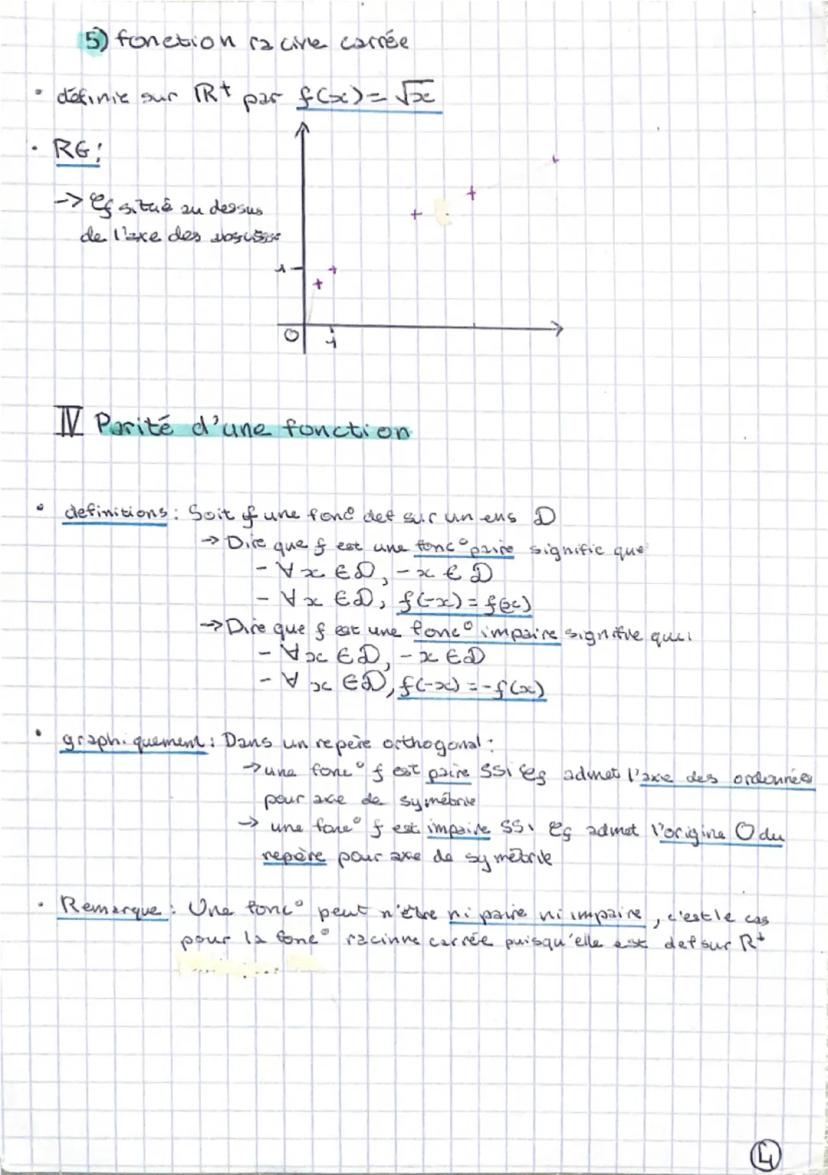 5) fonction racine carrée
• définie sur ℝ+ par f(x) = √x
• RG:
-> Cf situé au dessus
de l'axe des abscisse
1
0
1
IV Parité d'une fonction
• definitions : Soit f une fonc° def sur un ens D
-> Dire que f est une fonc° paire signifie que
- ∀x ∈ D, -x ∈ D
- ∀x ∈ D, f(-x) = f(x)
-> Dire que f est une fonc° impaire signifie que:
- ∀x ∈ D, -x ∈ D
- ∀x ∈ D, f(-x) = -f(x)
• graphiquement : Dans un repère orthogonal :
-> une fonc° f est paire SSi Cf admet l'axe des ordonnées
pour axe de symétrie
-> une fonc° f est impaire SSi Cf admet l'origine O du
repère pour axe de symétrie
• Remarque : Une fonc° peut n'être ni paire ni impaire, c'est le cas
pour la fonc° racinne carrée puisqu'elle est def sur R+
4